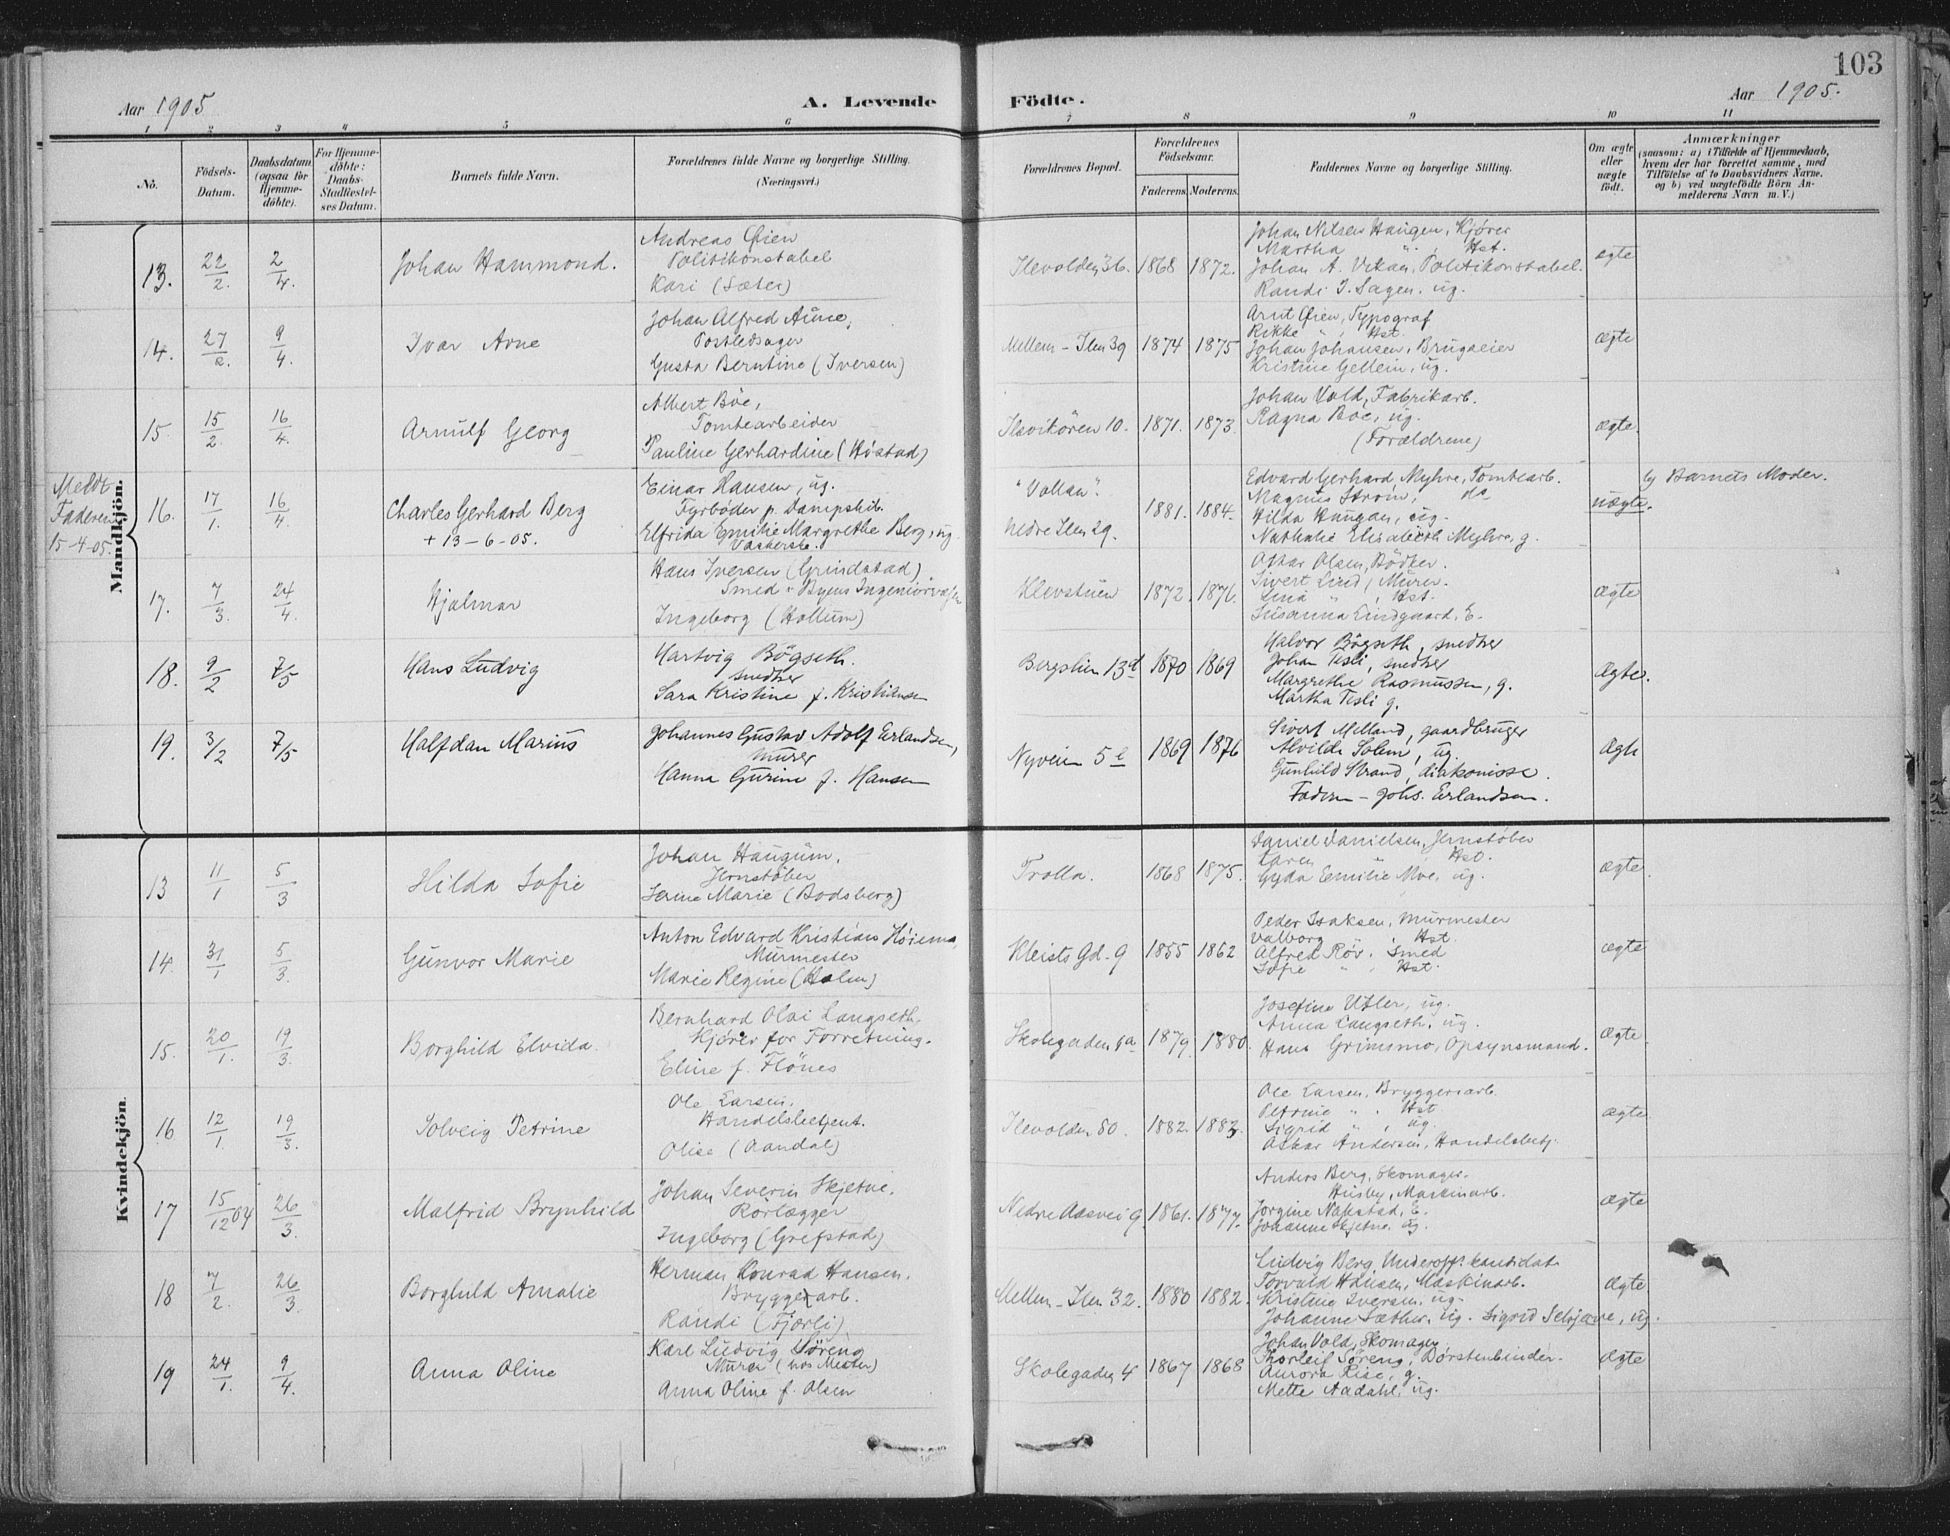 103
Aar 1905
A. Levende
Födte.
Aar 1905.
1 2 3 4 5 6 7 8 9 10 11
No.
Födsels-Datum.
Daabsdatum (ogsaa for Hjemme-döbte).
For Hjemme-döbte: Daabs-Stadfæstel-ses Datum.
Barnets fulde Navn.
Forældrenes fulde Navne og borgerlige Stilling.
(Næringsvei.)
Forældrenes Bopæl.
Forældrenes Födselsaar.
Faderens. Moderens.
Faddernes Navne og borgerlige Stilling.
Om ægte eller uægte födt.
Anmærkninger
(saasom: a) i Tilfælde af Hjemmedaab,
hvem der har forrettet samme, med
Tilföielse af to Daabsvidners Navne.
og b) ved uægtefödte Börn An-
melderens Navn m. V.)
Mandkjön.
13. 22/2. 2/4. Johan Hammond.
Andreas Øien
Politikonstabel
Kari (Sæter)
Ilevolden 36. 1868 1872.
Johan Nilsen Haugen, Kjörer
Martha " , Hst.
Johan A. Vikan, Politikonstabel.
Randi J. Sagen, ug.
ægte
14. 27/2. 9/4. Ivar Arne
Johan Alfred Aune,
Postledsager
Gusta Berntine (Iversen)
Mellem-Ilen 39 1874 1875
Arnt Øien, Typograf
Rikke " , Hst.
Johan Johansen, Brugseier
Kristine Gellein, ug.
ægte
15. 15/2. 16/4. Arnulf Georg
Albert Böe,
Tomtearbeider
Pauline Gerhardine (Høstad)
Ilsvikören 10. 1871. 1873.
Johan Vold, Fabrikarb.
Ragna Böe, ug.
(Forældrene)
ægte.
Meldt
Faderen
15-4-05.
16. 17/1. 16/4. Charles Gerhard Berg
+ 13-6-05.
Einar Hansen, ug.
Fyrbøder p. Dampskib.
Elfrida Emilie Margrethe Berg, ug.
"Vollan".
Nedre Ilen 29. 1881. 1884.
Edvard Gerhard Myhre, Tomtearb.
Magnus Strøm, do
Hilda Haugan, ug.
Nathalie Elisabeth Myhre, g.
uægte.
b) Barnets Moder.
17. 7/3. 24/4. Hjalmar
Hans Iversen (Grindstad)
Smed v. Byens Ingeniörvæsen
Ingeborg (Hollum)
Klevstuen 1872. 1876.
Oskar Olsen, Bödker.
Sivert Lind, Murer.
" , Hst.
Susanna Lindgaard, E.
ægte
18. 9/2 7/5 Hans Ludvig
Hartvig Bögseth.
snedker
Sara Kristine f. Kristiansen
Bergslien 13d 1870 1869
Halvor Bögseth, snedker
Johan Tesli, snedker
Margrethe Rasmussen, g.
Martha Tesli g.
Ægte.
19. 3/2 7/5 Halfdan Marius
Johannes Gustav Adolf Erlandsen,
murer
Hanna Gurine f. Hansen
Nyveien 5 1869 1876
Sivert Melland, gaardbruger
Alvilde Solem, ug.
Gunhild Strand, diakonisse.
Faderen - Johs. Erlandsen.
Ægte
Kvindekjön.
13 11/1 5/3 Hilda Sofie
Johan Haugum,
Jernstøber
Serine Marie (Bodsberg)
Trolla. 1868 1875.
Daniel Danielsen, Jernstøber
Karen Hst.
Gyda Emilie Moe, ug.
Ægte.
14. 31/1 5/3. Gunvor Marie
Anton Edvard Kristian
Murmester
Marie Regine (Holm)
Kleists Gd. 9 1855 1862
Peder Isaksen, Murmester
Valborg " , Hst.
Alfred Röv. Smed
Sofie " , Hst.
ægte
15. 20/1. 19/3. Borghild Elvida.
Bernhard Olai Langseth.
Kjörer for Forretning.
Eline f. Flönes
Skolegaden 9a 1879 1880.
Josefine Utler, ug.
Anna Langseth, ug.
Hans Grimsmo, Opsynsmand.
Ægte
16 12/1. 19/3. Solveig Petrine
Ole Larsen.
Handelsbetjent.
Olise (Aandal)
Ilevolden 80. 1882. 1883.
Ole Larsen, Bryggeriarb.
Petrine " , Hst
Sigrid " , ug.
Oskar Andersen, Handelsbetj.
ægte
17 15/12 04 26/3. Malfrid Brynhild
Johan Severin Skjetne.
Rörlægger
Ingeborg (Grefstad)
Nedre Aasvei 9 1861. 1877.
Anders Berg, Skomager.
Husby, Maskinarb.
Jorgine Nafstad, E.
Johanne Skjetne, ug.
ægte
18 7/2. 26/3. Borghild Amalie
Herman Konrad Hansen.
Bryggeriarb.
Randi (Fjørli)
Mellem-Ilen 32. 1880 1882.
Ludvig Berg, Underoff. kandidat.
Torvald Hansen, Maskinarb.
Kristine Iversen, ug.
Johanne Sæther, ug. Sigrid Selsjære, ug.
Ægte
19 24/1. 9/4. Anna Oline
Karl Ludvig Söreng
Murer (hos Mester)
Anna Oline f. Olsen
Skolegaden 4 1867 1868
Johan Vold, Skomager
Thorleif Söreng, Börstenbinder.
Aurora Riise, g.
Mette Aadahl, ug.
Ægte